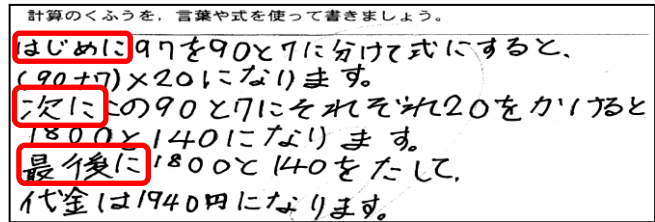 計算のくふうを，言葉や式を使って書きましょう。
はじめに97を90と7に分けて式にすると、
(90+7)×20になります。
次にこの90と7にそれぞれ20をかけると
1800と140になります。
最後に1800と140をたして、
代金は1940円になります。